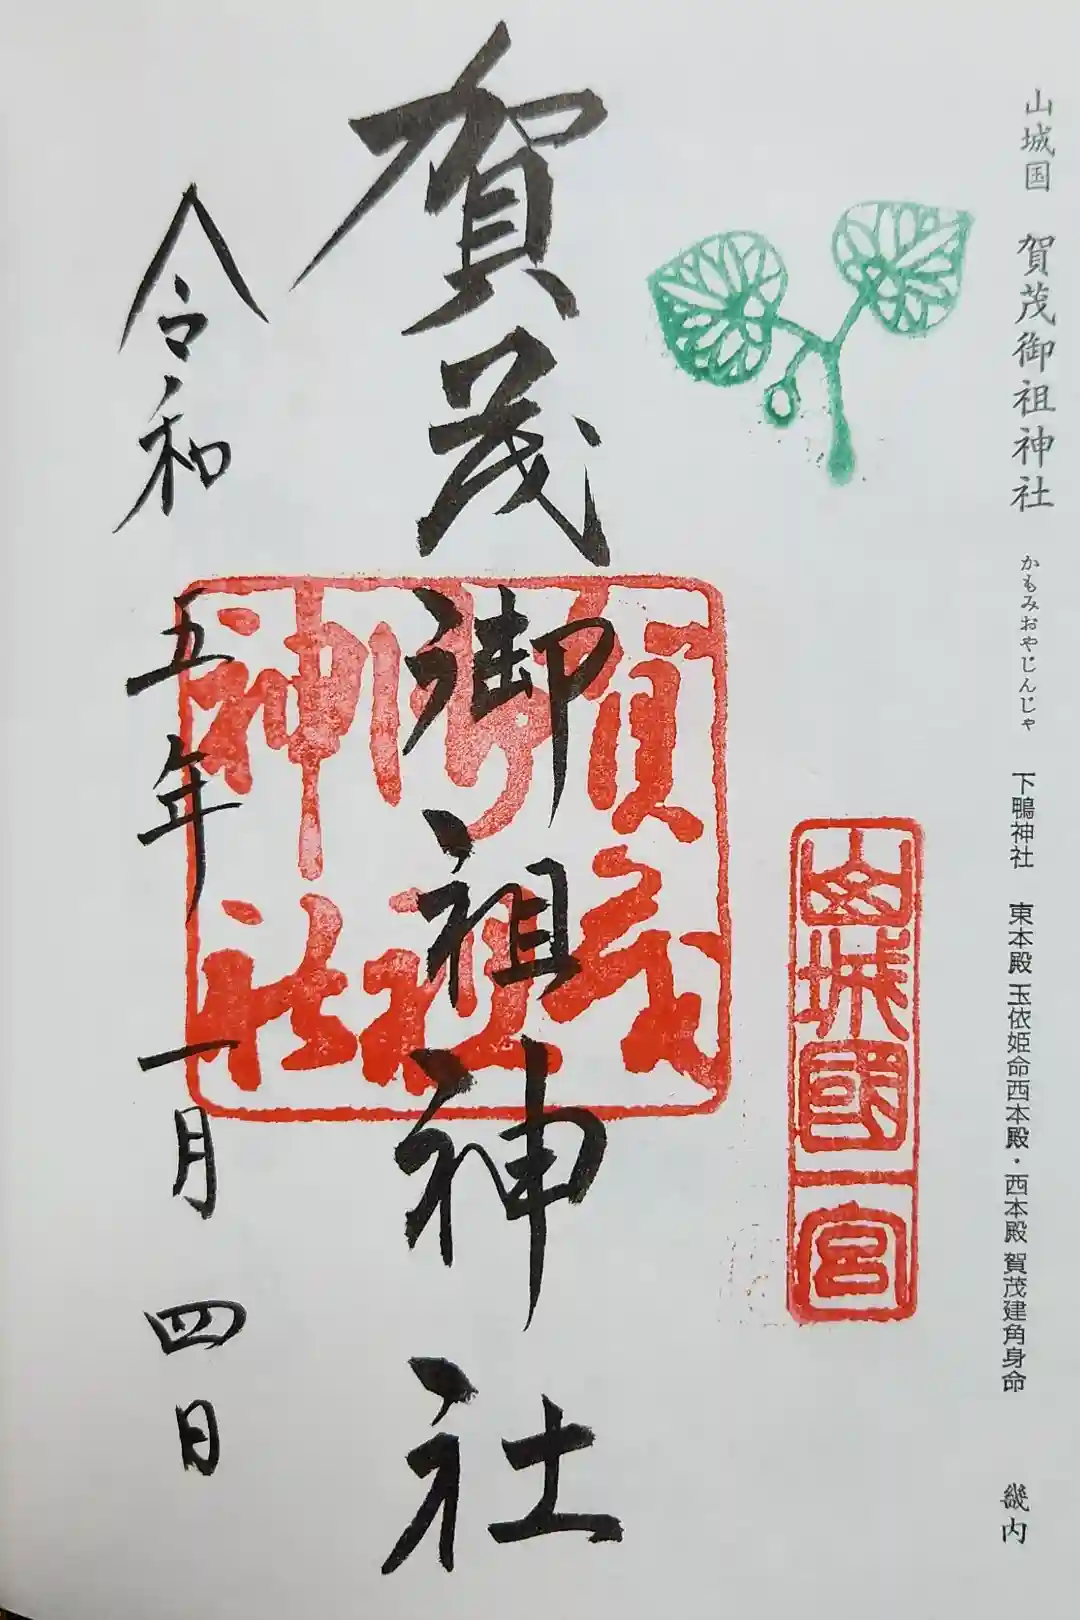 山城国 賀茂御祖神社 かもみおやじんじゃ 下鴨神社 東本殿 玉依姫命西本殿・西本殿 賀茂建角身命 畿内
山城國一宮
賀茂御祖神社
賀茂御祖神社
令和五年一月四日